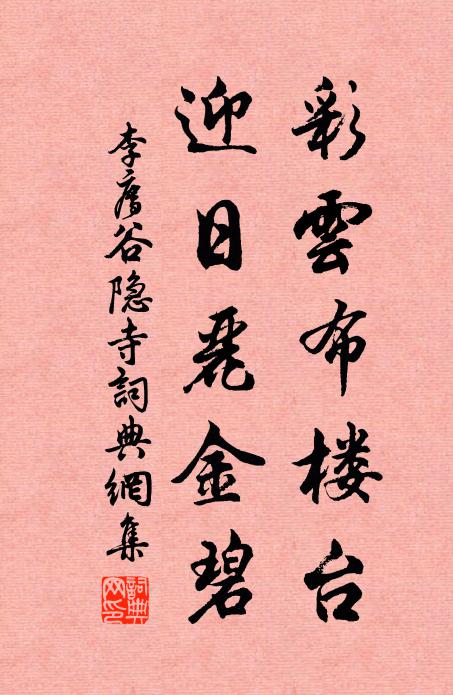 彩雲布楼台
迎日麗金碧
李廌谷隐寺詞典網集
詞典网印